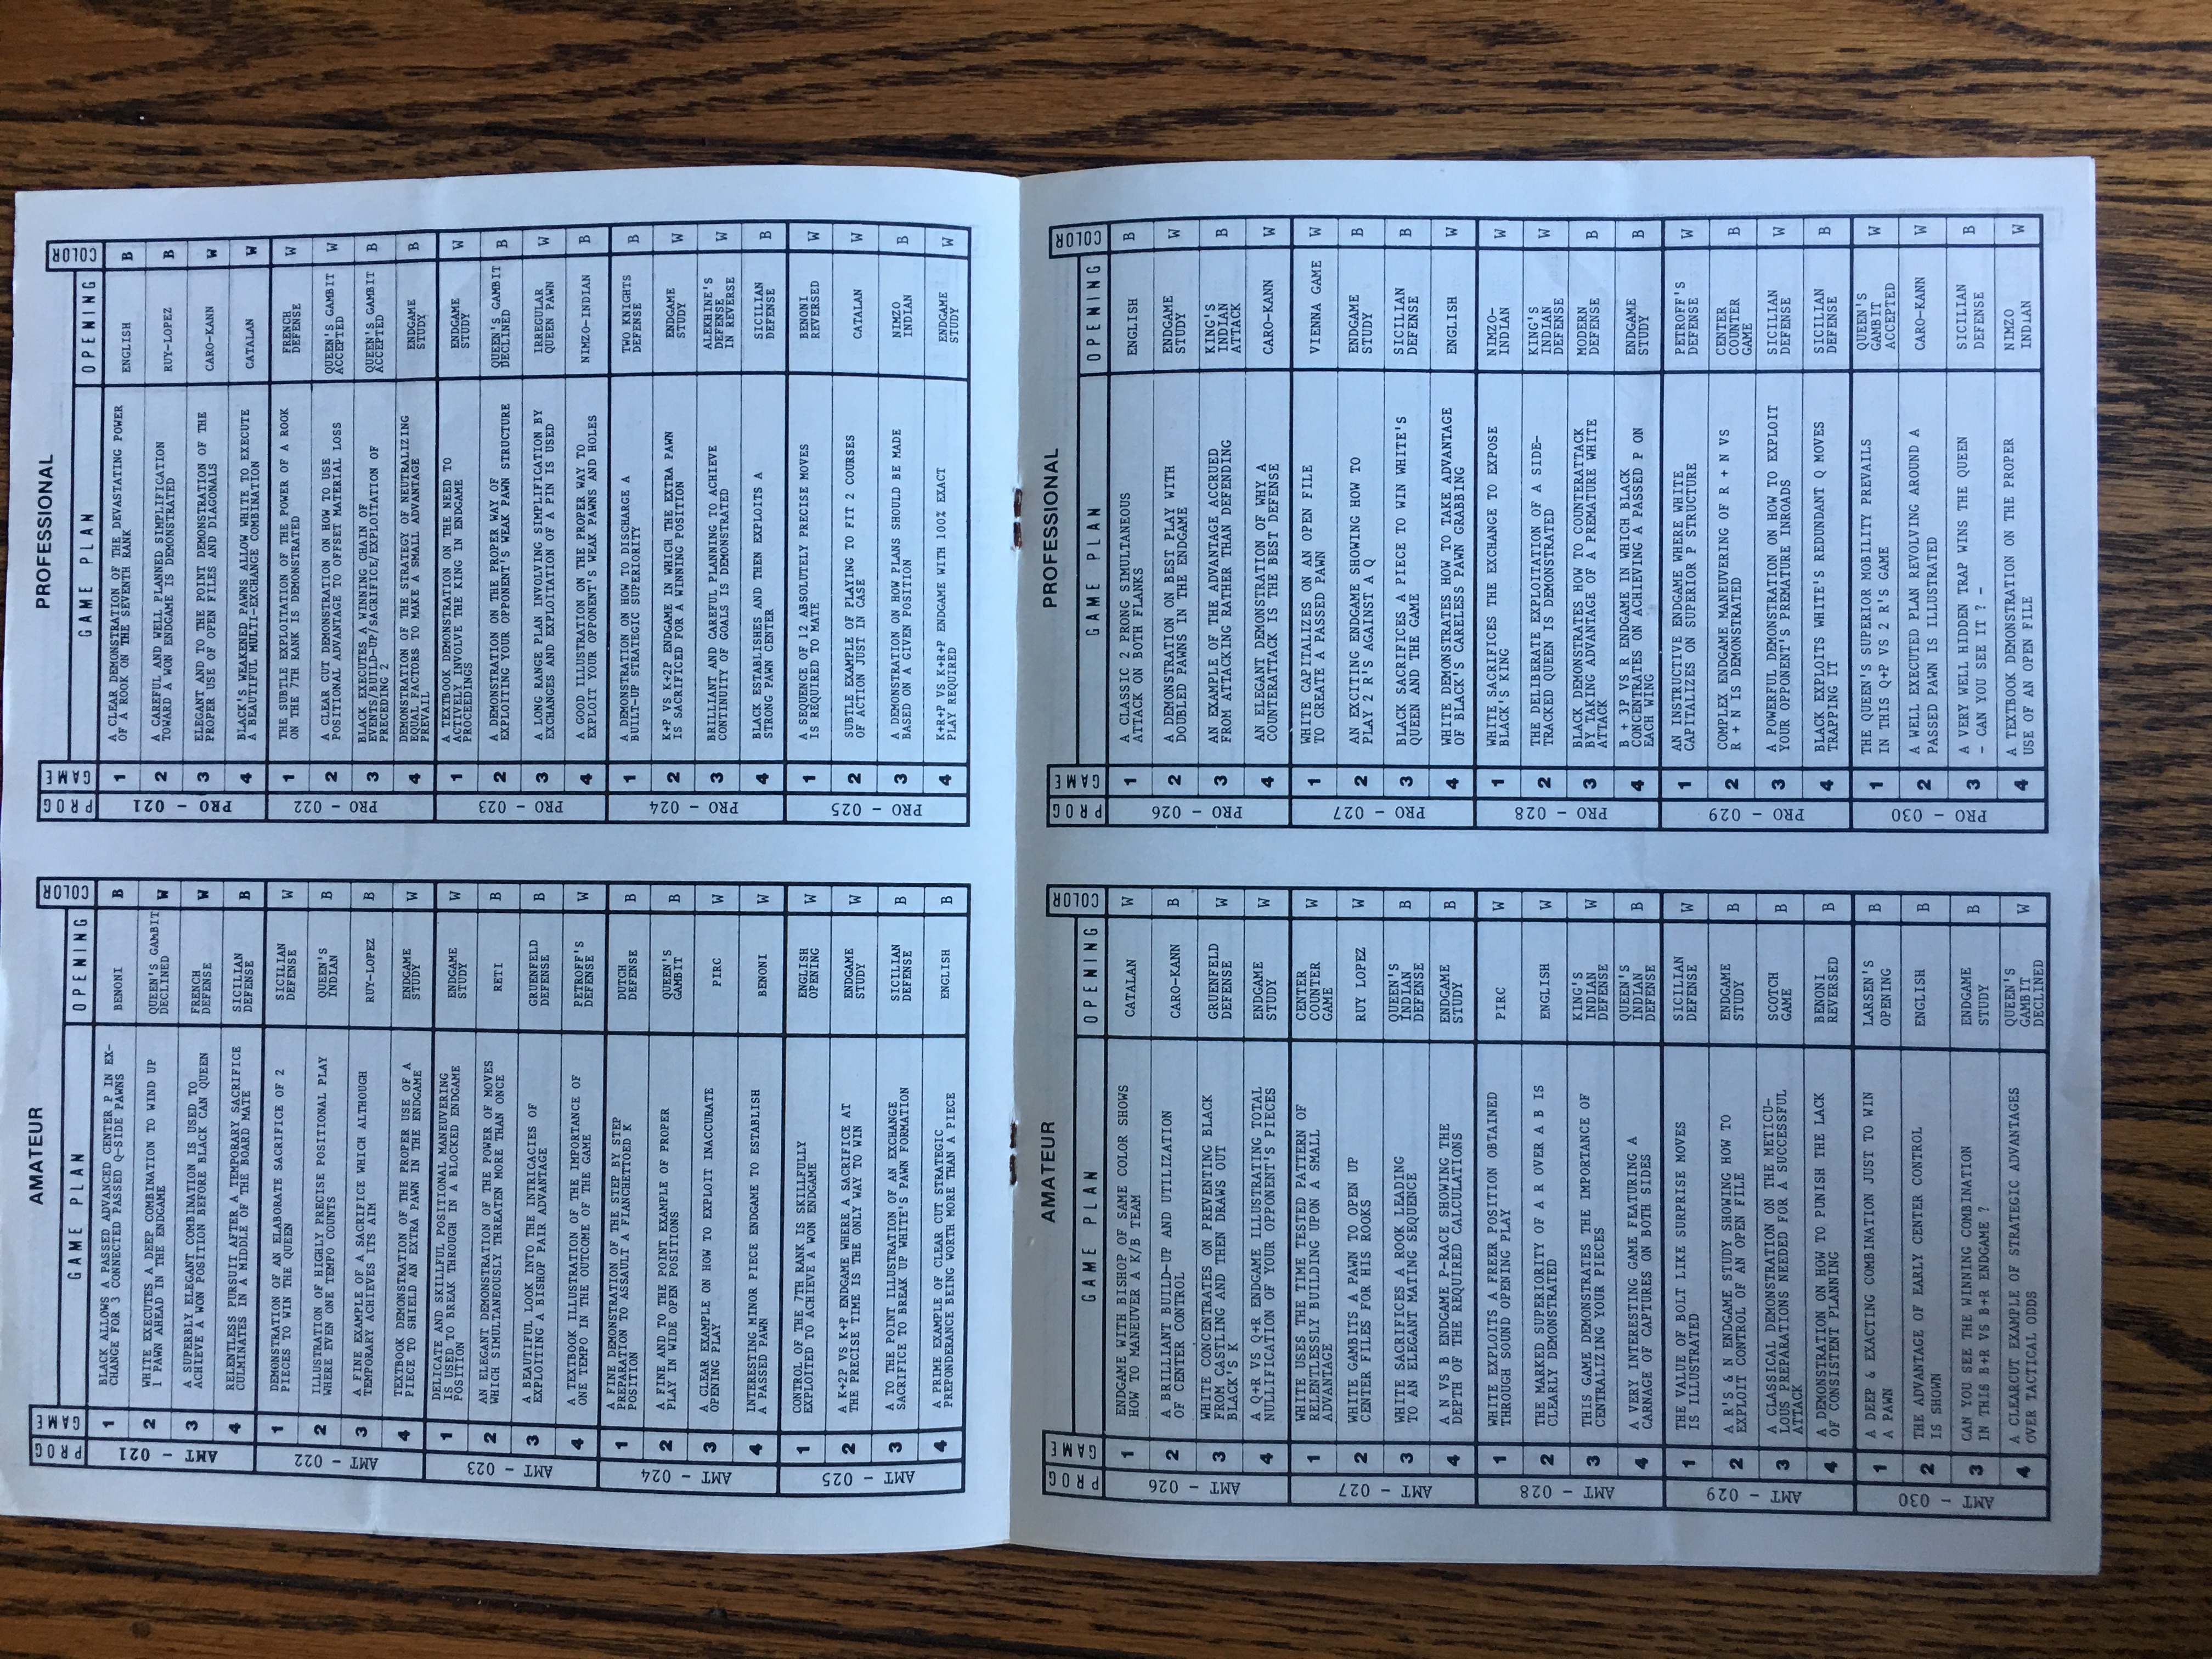 AMATEUR
PROG
GAME
GAME PLAN
OPENING
COLOR
AMT - 021
1
BLACK ALLOWS A PASSED ADVANCED CENTER P IN EX-
CHANGE FOR 3 CONNECTED PASSED Q-SIDE PAWNS
BENONI
B
2
WHITE EXECUTES A DEEP COMBINATION TO WIND UP
1 PAWN AHEAD IN THE ENDGAME
QUEEN'S GAMBIT
DECLINED
W
3
A SUPERBLY ELEGANT COMBINATION IS USED TO
ACHIEVE A WON POSITION BEFORE BLACK CAN QUEEN
FRENCH
DEFENSE
W
4
RELENTLESS PURSUIT AFTER A TEMPORARY SACRIFICE
CULMINATES IN A MIDDLE OF THE BOARD MATE
SICILIAN
DEFENSE
B
AMT - 022
1
DEMONSTRATION OF AN ELABORATE SACRIFICE OF 2
PIECES TO WIN THE QUEEN
SICILIAN
DEFENSE
W
2
ILLUSTRATION OF HIGHLY PRECISE POSITIONAL PLAY
WHERE EVEN ONE TEMPO COUNTS
QUEEN'S
INDIAN
B
3
A FINE EXAMPLE OF A SACRIFICE WHICH ALTHOUGH
TEMPORARY ACHIEVES ITS AIM
RUY-LOPEZ
B
4
TEXTBOOK DEMONSTRATION OF THE PROPER USE OF A
PIECE TO SHIELD AN EXTRA PAWN IN THE ENDGAME
ENDGAME
STUDY
W
AMT - 023
1
DELICATE AND SKILLFUL POSITIONAL MANEUVERING
IS USED TO BREAK THROUGH IN A BLOCKED ENDGAME
POSITION
ENDGAME
STUDY
W
2
AN ELEGANT DEMONSTRATION OF THE POWER OF MOVES
WHICH SIMULTANEOUSLY THREATEN MORE THAN ONCE
RETI
B
3
A BEAUTIFUL LOOK INTO THE INTRICACIES OF
EXPLOITING A BISHOP PAIR ADVANTAGE
GRUENFELD
DEFENSE
B
4
A TEXTBOOK ILLUSTRATION OF THE IMPORTANCE OF
ONE TEMPO IN THE OUTCOME OF THE GAME
PETROFF'S
DEFENSE
W
AMT - 024
1
A FINE DEMONSTRATION OF THE STEP BY STEP
PREPARATION TO ASSAULT A FIANCHETTOED K
POSITION
DUTCH
DEFENSE
B
2
A FINE AND TO THE POINT EXAMPLE OF PROPER
PLAY IN WIDE OPEN POSITIONS
QUEEN'S
GAMBIT
W
3
A CLEAR EXAMPLE ON HOW TO EXPLOIT INACCURATE
OPENING PLAY
PIRC
W
4
INTERESTING MINOR PIECE ENDGAME TO ESTABLISH
A PASSED PAWN
BENONI
W
AMT - 025
1
CONTROL OF THE 7TH RANK IS SKILLFULLY
EXPLOITED TO ACHIEVE A WON ENDGAME
ENGLISH
OPENING
W
2
A K+2P VS K+P ENDGAME WHERE A SACRIFICE AT
THE PRECISE TIME IS THE ONLY WAY TO WIN
ENDGAME
STUDY
W
3
A TO THE POINT ILLUSTRATION OF AN EXCHANGE
SACRIFICE TO BREAK UP WHITE'S PAWN FORMATION
SICILIAN
DEFENSE
B
4
A PRIME EXAMPLE OF CLEAR CUT STRATEGIC
PREPONDERANCE BEING WORTH MORE THAN A PIECE
ENGLISH
B
PROFESSIONAL
PROG
GAME
GAME PLAN
OPENING
COLOR
PRO - 021
1
A CLEAR DEMONSTRATION OF THE DEVASTATING POWER
OF A ROOK ON THE SEVENTH RANK
ENGLISH
B
2
A CAREFUL AND WELL PLANNED SIMPLIFICATION
TOWARD A WON ENDGAME IS DEMONSTRATED
RUY-LOPEZ
B
3
ELEGANT AND TO THE POINT DEMONSTRATION OF THE
PROPER USE OF OPEN FILES AND DIAGONALS
CARO-KANN
W
4
BLACK'S WEAKENED PAWNS ALLOW WHITE TO EXECUTE
A BEAUTIFUL MULTI-EXCHANGE COMBINATION
CATALAN
W
PRO - 022
1
THE SUBTLE EXPLOITATION OF THE POWER OF A ROOK
ON THE 7TH RANK IS DEMONSTRATED
FRENCH
DEFENSE
W
2
A CLEAR CUT DEMONSTRATION ON HOW TO USE
POSITIONAL ADVANTAGE TO OFFSET MATERIAL LOSS
QUEEN'S GAMBIT
ACCEPTED
W
3
BLACK EXECUTES A WINNING CHAIN OF
EVENTS/BUILD-UP/SACRIFICE/EXPLOITATION OF
PRECEDING 2
QUEEN'S GAMBIT
ACCEPTED
B
4
DEMONSTRATION OF THE STRATEGY OF NEUTRALIZING
EQUAL FACTORS TO MAKE A SMALL ADVANTAGE
PREVAIL
ENDGAME
STUDY
B
PRO - 023
1
A TEXTBOOK DEMONSTRATION ON THE NEED TO
ACTIVELY INVOLVE THE KING IN ENDGAME
PROCEEDINGS
ENDGAME
STUDY
W
2
A DEMONSTRATION ON THE PROPER WAY OF
EXPLOITING YOUR OPPONENT'S WEAK PAWN STRUCTURE
QUEEN'S GAMBIT
DECLINED
B
3
A LONG RANGE PLAN INVOLVING SIMPLIFICATION BY
EXCHANGES AND EXPLOITATION OF A PIN IS USED
IRREGULAR
QUEEN PAWN
W
4
A GOOD ILLUSTRATION ON THE PROPER WAY TO
EXPLOIT YOUR OPPONENT'S WEAK PAWNS AND HOLES
NIMZO-INDIAN
B
PRO - 024
1
A DEMONSTRATION ON HOW TO DISCHARGE A
BUILT-UP STRATEGIC SUPERIORITY
TWO KNIGHTS
DEFENSE
B
2
K+P VS K+2P ENDGAME IN WHICH THE EXTRA PAWN
IS SACRIFICED FOR A WINNING POSITION
ENDGAME
STUDY
W
3
BRILLIANT AND CAREFUL PLANNING TO ACHIEVE
CONTINUITY OF GOALS IS DEMONSTRATED
ALEKHINE'S
DEFENSE
IN REVERSE
W
4
BLACK ESTABLISHES AND THEN EXPLOITS A
STRONG PAWN CENTER
SICILIAN
DEFENSE
B
PRO - 025
1
A SEQUENCE OF 12 ABSOLUTELY PRECISE MOVES
IS REQUIRED TO MATE
BENONI
REVERSED
W
2
SUBTLE EXAMPLE OF PLAYING TO FIT 2 COURSES
OF ACTION JUST IN CASE
CATALAN
W
3
A DEMONSTRATION ON HOW PLANS SHOULD BE MADE
BASED ON A GIVEN POSITION
NIMZO
INDIAN
B
4
K+R+P VS K+R+P ENDGAME WITH 100% EXACT
PLAY REQUIRED
ENDGAME
STUDY
W
AMATEUR
PROG
GAME
GAME PLAN
OPENING
COLOR
AMT - 026
1
ENDGAME WITH BISHOP OF SAME COLOR SHOWS
HOW TO MANEUVER A K/B TEAM
CATALAN
W
2
A BRILLIANT BUILD-UP AND UTILIZATION
OF CENTER CONTROL
CARO-KANN
B
3
WHITE CONCENTRATES ON PREVENTING BLACK
FROM CASTLING AND THEN DRAWS OUT
BLACK'S K
GRUENFELD
DEFENSE
W
4
A Q+R VS Q+R ENDGAME ILLUSTRATING TOTAL
NULLIFICATION OF YOUR OPPONENT'S PIECES
ENDGAME
STUDY
W
AMT - 027
1
WHITE USES THE TIME TESTED PATTERN OF
RELENTLESSLY BUILDING UPON A SMALL
ADVANTAGE
CENTER
COUNTER
GAME
W
2
WHITE GAMBITS A PAWN TO OPEN UP
CENTER FILES FOR HIS ROOKS
RUY LOPEZ
W
3
WHITE SACRIFICES A ROOK LEADING
TO AN ELEGANT MATING SEQUENCE
QUEEN'S
INDIAN
DEFENSE
B
4
A N VS B ENDGAME P-RACE SHOWING THE
DEPTH OF THE REQUIRED CALCULATIONS
ENDGAME
STUDY
B
AMT - 028
1
WHITE EXPLOITS A FREER POSITION OBTAINED
THROUGH SOUND OPENING PLAY
PIRC
W
2
THE MARKED SUPERIORITY OF A R OVER A B IS
CLEARLY DEMONSTRATED
ENGLISH
W
3
THIS GAME DEMONSTRATES THE IMPORTANCE OF
CENTRALIZING YOUR PIECES
KING'S
INDIAN
DEFENSE
W
4
A VERY INTERESTING GAME FEATURING A
CARNAGE OF CAPTURES ON BOTH SIDES
QUEEN'S
INDIAN
DEFENSE
B
AMT - 029
1
THE VALUE OF BOLT LIKE SURPRISE MOVES
IS ILLUSTRATED
SICILIAN
DEFENSE
W
2
A R'S & N ENDGAME STUDY SHOWING HOW TO
EXPLOIT CONTROL OF AN OPEN FILE
ENDGAME
STUDY
B
3
A CLASSICAL DEMONSTRATION ON THE METICU-
LOUS PREPARATIONS NEEDED FOR A SUCCESSFUL
ATTACK
SCOTCH
GAME
B
4
A DEMONSTRATION ON HOW TO PUNISH THE LACK
OF CONSISTENT PLANNING
BENONI
REVERSED
B
AMT - 030
1
A DEEP & EXACTING COMBINATION JUST TO WIN
A PAWN
LARSEN'S
OPENING
B
2
THE ADVANTAGE OF EARLY CENTER CONTROL
IS SHOWN
ENGLISH
B
3
CAN YOU SEE THE WINNING COMBINATION
IN THIS B+R VS B+R ENDGAME ?
ENDGAME
STUDY
B
4
A CLEARCUT EXAMPLE OF STRATEGIC ADVANTAGES
OVER TACTICAL ODDS
QUEEN'S
GAMBIT
DECLINED
W
PROFESSIONAL
PROG
GAME
GAME PLAN
OPENING
COLOR
PRO - 026
1
A CLASSIC 2 PRONG SIMULTANEOUS
ATTACK ON BOTH FLANKS
ENGLISH
B
2
A DEMONSTRATION ON BEST PLAY WITH
DOUBLED PAWNS IN THE ENDGAME
ENDGAME
STUDY
W
3
AN EXAMPLE OF THE ADVANTAGE ACCRUED
FROM ATTACKING RATHER THAN DEFENDING
KING'S
INDIAN
ATTACK
B
4
AN ELEGANT DEMONSTRATION OF WHY A
COUNTERATTACK IS THE BEST DEFENSE
CARO-KANN
W
PRO - 027
1
WHITE CAPITALIZES ON AN OPEN FILE
TO CREATE A PASSED PAWN
VIENNA GAME
W
2
AN EXCITING ENDGAME SHOWING HOW TO
PLAY 2 R'S AGAINST A Q
ENDGAME
STUDY
B
3
BLACK SACRIFICES A PIECE TO WIN WHITE'S
QUEEN AND THE GAME
SICILIAN
DEFENSE
B
4
WHITE DEMONSTRATES HOW TO TAKE ADVANTAGE
OF BLACK'S CARELESS PAWN GRABBING
ENGLISH
W
PRO - 028
1
WHITE SACRIFICES THE EXCHANGE TO EXPOSE
BLACK'S KING
NIMZO-
INDIAN
W
2
THE DELIBERATE EXPLOITATION OF A SIDE-
TRACKED QUEEN IS DEMONSTRATED
KING'S
INDIAN
DEFENSE
W
3
BLACK DEMONSTRATES HOW TO COUNTERATTACK
BY TAKING ADVANTAGE OF A PREMATURE WHITE
ATTACK
MODERN
DEFENSE
B
4
B + 3P VS R ENDGAME IN WHICH BLACK
CONCENTRATES ON ACHIEVING A PASSED P ON
EACH WING
ENDGAME
STUDY
B
PRO - 029
1
AN INSTRUCTIVE ENDGAME WHERE WHITE
CAPITALIZES ON SUPERIOR P STRUCTURE
PETROFF'S
DEFENSE
W
2
COMPLEX ENDGAME MANEUVERING OF R + N VS
R + N IS DEMONSTRATED
CENTER
COUNTER
GAME
B
3
A POWERFUL DEMONSTRATION ON HOW TO EXPLOIT
YOUR OPPONENT'S PREMATURE INROADS
SICILIAN
DEFENSE
W
4
BLACK EXPLOITS WHITE'S REDUNDANT Q MOVES
TRAPPING IT
SICILIAN
DEFENSE
B
PRO - 030
1
THE QUEEN'S SUPERIOR MOBILITY PREVAILS
IN THIS Q+P VS 2 R'S GAME
QUEEN'S
GAMBIT
ACCEPTED
W
2
A WELL EXECUTED PLAN REVOLVING AROUND A
PASSED PAWN IS ILLUSTRATED
CARO-KANN
W
3
A VERY WELL HIDDEN TRAP WINS THE QUEEN
- CAN YOU SEE IT ? -
SICILIAN
DEFENSE
B
4
A TEXTBOOK DEMONSTRATION ON THE PROPER
USE OF AN OPEN FILE
NIMZO
INDIAN
W